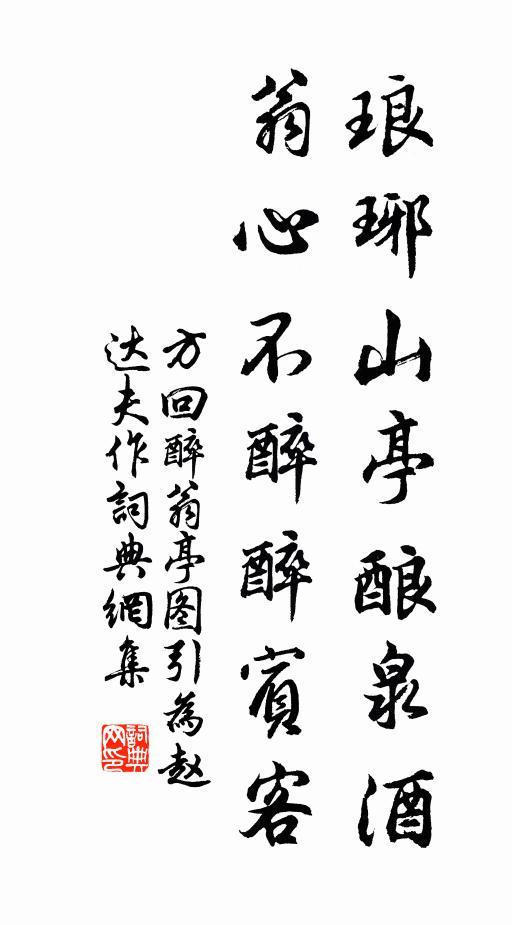 琅琊山亭酿泉酒
翁心不醉醉賓客
方回醉翁亭图引為赵
达夫作詞典網集
詞典网印